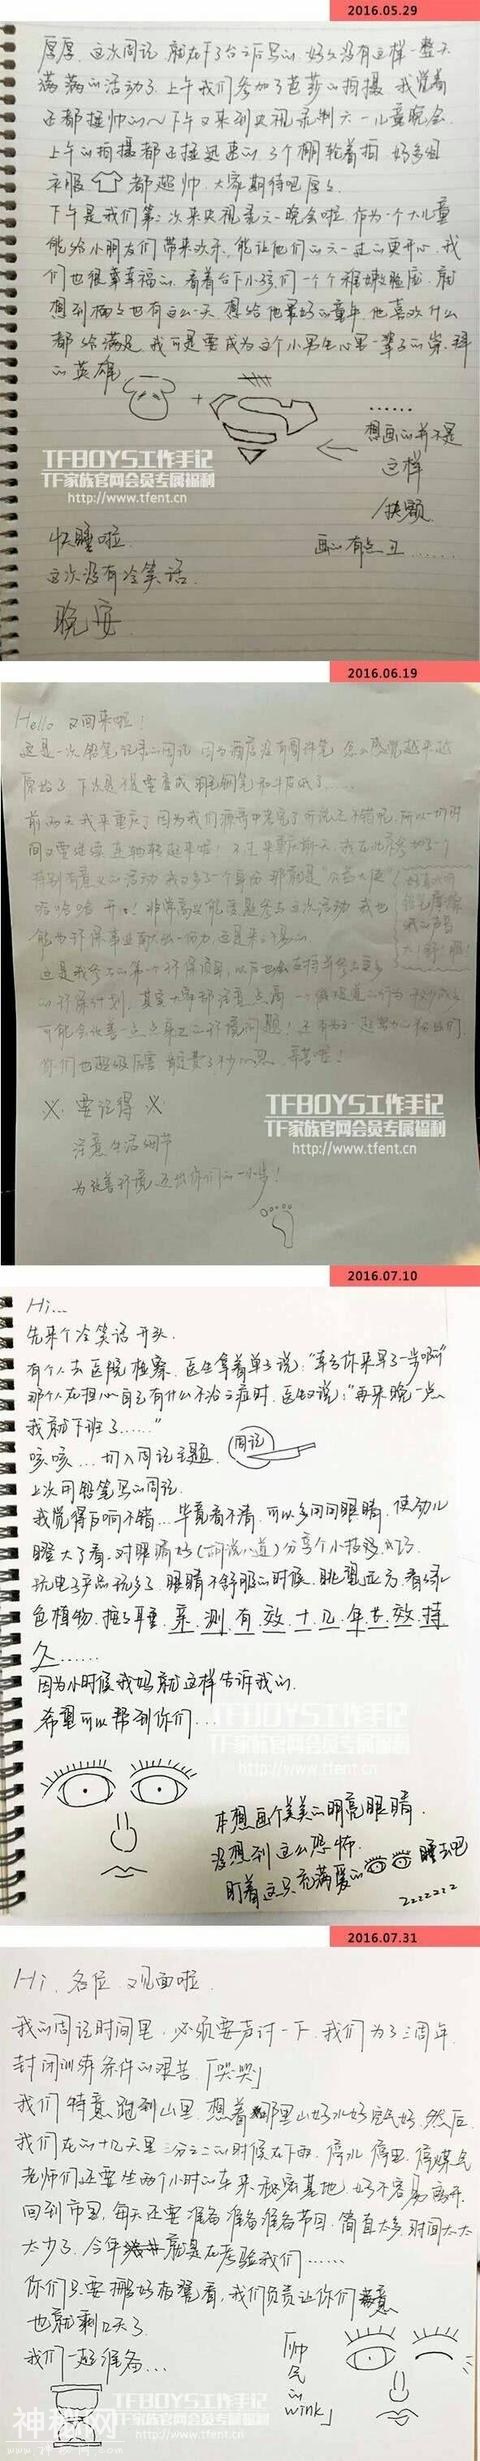 2016.05.29
厚厚 这次周记 就在下了台之后写的 好久没有这样一整天
满满的活动了 上午我们参加了芭莎的拍摄 我觉着
还都挺帅的~下午又来到央视录制六一儿童晚会
上午的拍摄都还挺迅速的 3个棚轮着拍 好多组
衣服 都超帅 大家期待吧
下午是我们第二次来央视录六一晚会啦 作为一个大儿童
能给小朋友们带来欢乐 能让他们的六一过的更开心 我
们也很幸幸福的 看着台下小孩们一个个稚嫩脸庞 就
想到楠楠也有这么一天 想给他最好的童年 他喜欢什么
都给满足 我可是要成为这个小男生心里一辈子的崇拜
的英雄
+
......
想画的并不是
这样
画的有点丑......
TFBOYS工作手记
TF家族官网会员专属福利
http://www.tfent.cn
快睡啦
这次没有冷笑话
晚安
2016.06.19
Hello 又回来啦!
这是一次铅笔记录的周记 因为酒店没有圆珠笔 怎么感觉越来越
原始了 下次是不是要变成羽毛钢笔和牛皮纸了......
前两天我来重庆了 因为我们 中考完了 所以 时
间又要继续连轴转起来啦! 不过来重庆前天 我在北京参加了一个
特别有意义的活动 我又多了一个身份 那就是"公益大使"
哈哈哈 开心! 非常高兴能受邀参与这次活动 我也
能为环保事业献出一份力 这是来之不易的
这是我参与的第一个环保项目 以后也会支持并参与更多
的环保计划 其实大家都注意点滴 一个微小的行为
可能会改善一点点身边的环境问题! 还有为了一起努力 粉丝们
你们也超级厉害 辛苦啦!
※ 要记得 ※
注意生活细节
为改善环境 迈出你们的一小步!
TFBOYS工作手记
TF家族官网会员专属福利
http://www.tfent.cn
2016.07.10
Hi...
先来个冷笑话开头.
有个人去医院检察. 医生拿着单子说:"幸亏你来早了一步啊"
那个人在担心自己有什么不治之症时. 医生又说:"再来晚一点
我就下班了......"
咳咳...切入周记主题. 周记
上次用铅笔写的周记.
我觉得反响不错...毕竟看不清. 可以多闭闭眼睛. 使劲儿
瞪大了看. 对眼睛好(胡说八道)分享个小技巧
玩电子产品玩多了. 眼睛不舒服的时候. 眺望远方. 看绿
色植物. 捏耳垂. 亲测有效十几年老效持
久......
因为小时候我妈就这样告诉我的.
希望可以帮到你们...
TFBOYS工作手记
TF家族官网会员专属福利
本想画个美美的明亮眼睛.
没想到这么恐怖.
盯着这只充满爱的 睡去吧
zzzzzzz
2016.07.31
Hi. 各位. 又见面啦.
我的周记时间里. 必须要声讨一下. 我们为了三周年.
封闭训练条件的艰苦.「哭哭」
我们特意跑到山里. 想着那里山好水好空气好. 然后
我们在的十几天里三分之二的时候在下雨. 停水 停电 停煤气
老师们还要坐两个小时的车来秘密基地. 好不容易离开
回到市里. 每天还要准备准备准备节目. 简直太多. 时间太太
太少了. 今年 就是在考验我们......
你们只要搬好板凳看. 我们负责让你们满意
也就剩几天了
我们一起准备...
「帅气的wink」
TFBOYS工作手记
TF家族官网会员专属福利
http://www.tfent.cn
神秘网